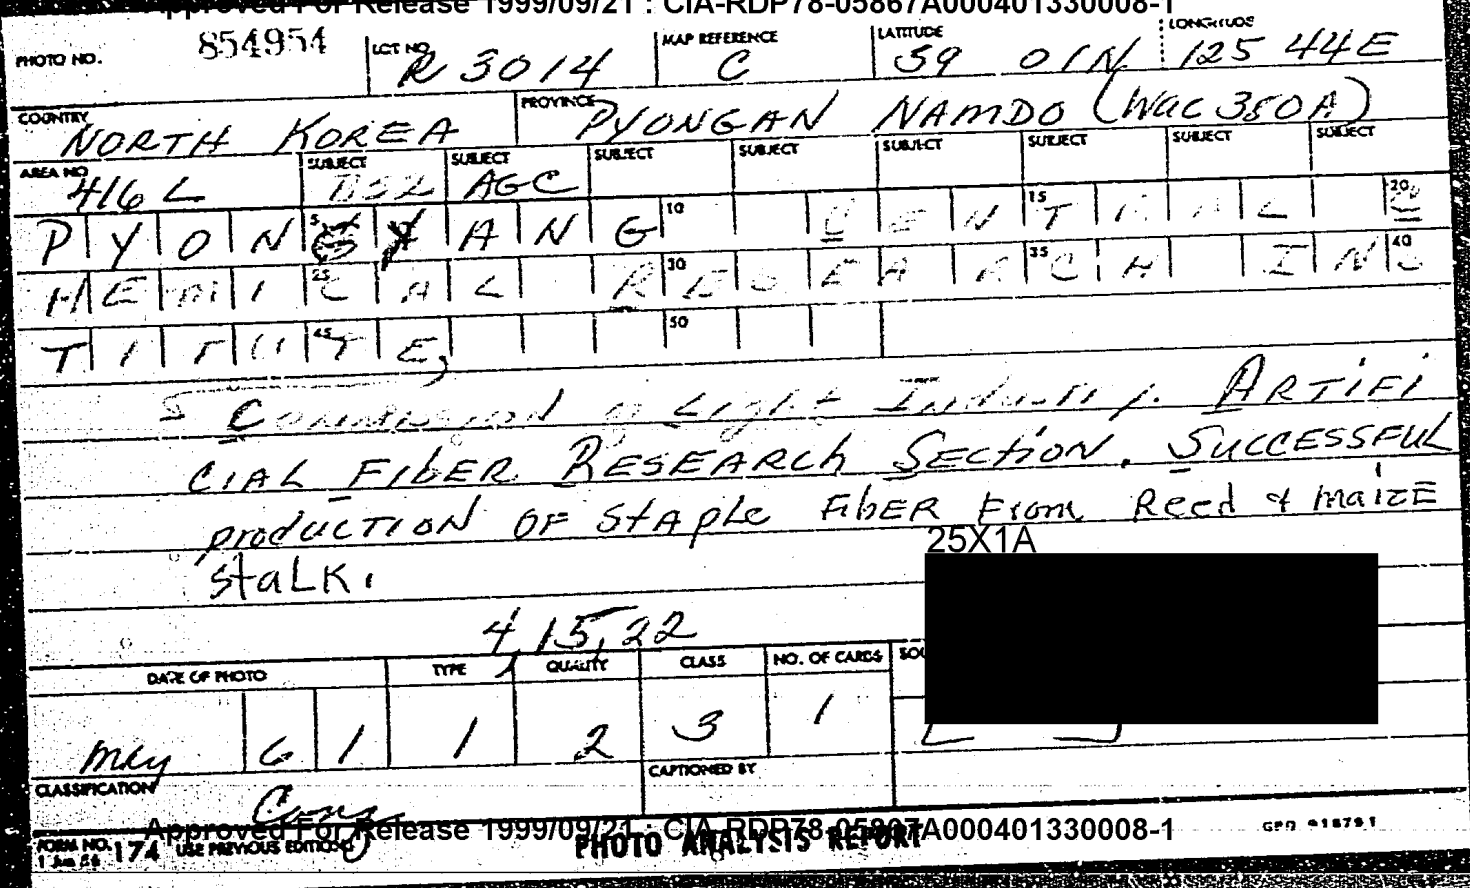 Approved For Release 1999/09/21 : CIA-RDP78-05867A000401330008-1
PHOTO NO. 854954 LOT NO. R 3014 MAP REFERENCE C LATITUDE 39 01N LONGITUDE 125 44E
COUNTRY NORTH KOREA PROVINCE PYONGAN NAMDO (WAC 380A)
AREA NO 416 L SUBJECT SUBJECT AGC SUBJECT SUBJECT SUBJECT SUBJECT SUBJECT SUBJECT
PYONGYANG 5 10 CENTRAL 15 C 20
HEMICAL 25 RESEARCH 30 35 INS 40
TITUTE, 45 50
Commission of Light Industry. ARTIFI
CIAL FIBER RESEARCH SECTION. SUCCESSFUL
PRODUCTION OF STAPLE FIBER From Reed & maizE
STALK.
25X1A
4, 15, 22
DATE OF PHOTO TYPE QUALITY CLASS NO. OF CARDS SOU
May 6 1 1 2 3 1
CLASSIFICATION CAPTIONED BY
Approved For Release 1999/09/21 : CIA-RDP78-05867A000401330008-1
FORM NO. 174 USE PREVIOUS EDITIONS PHOTO ANALYSIS REPORT GPO 918791
1 Jun 56